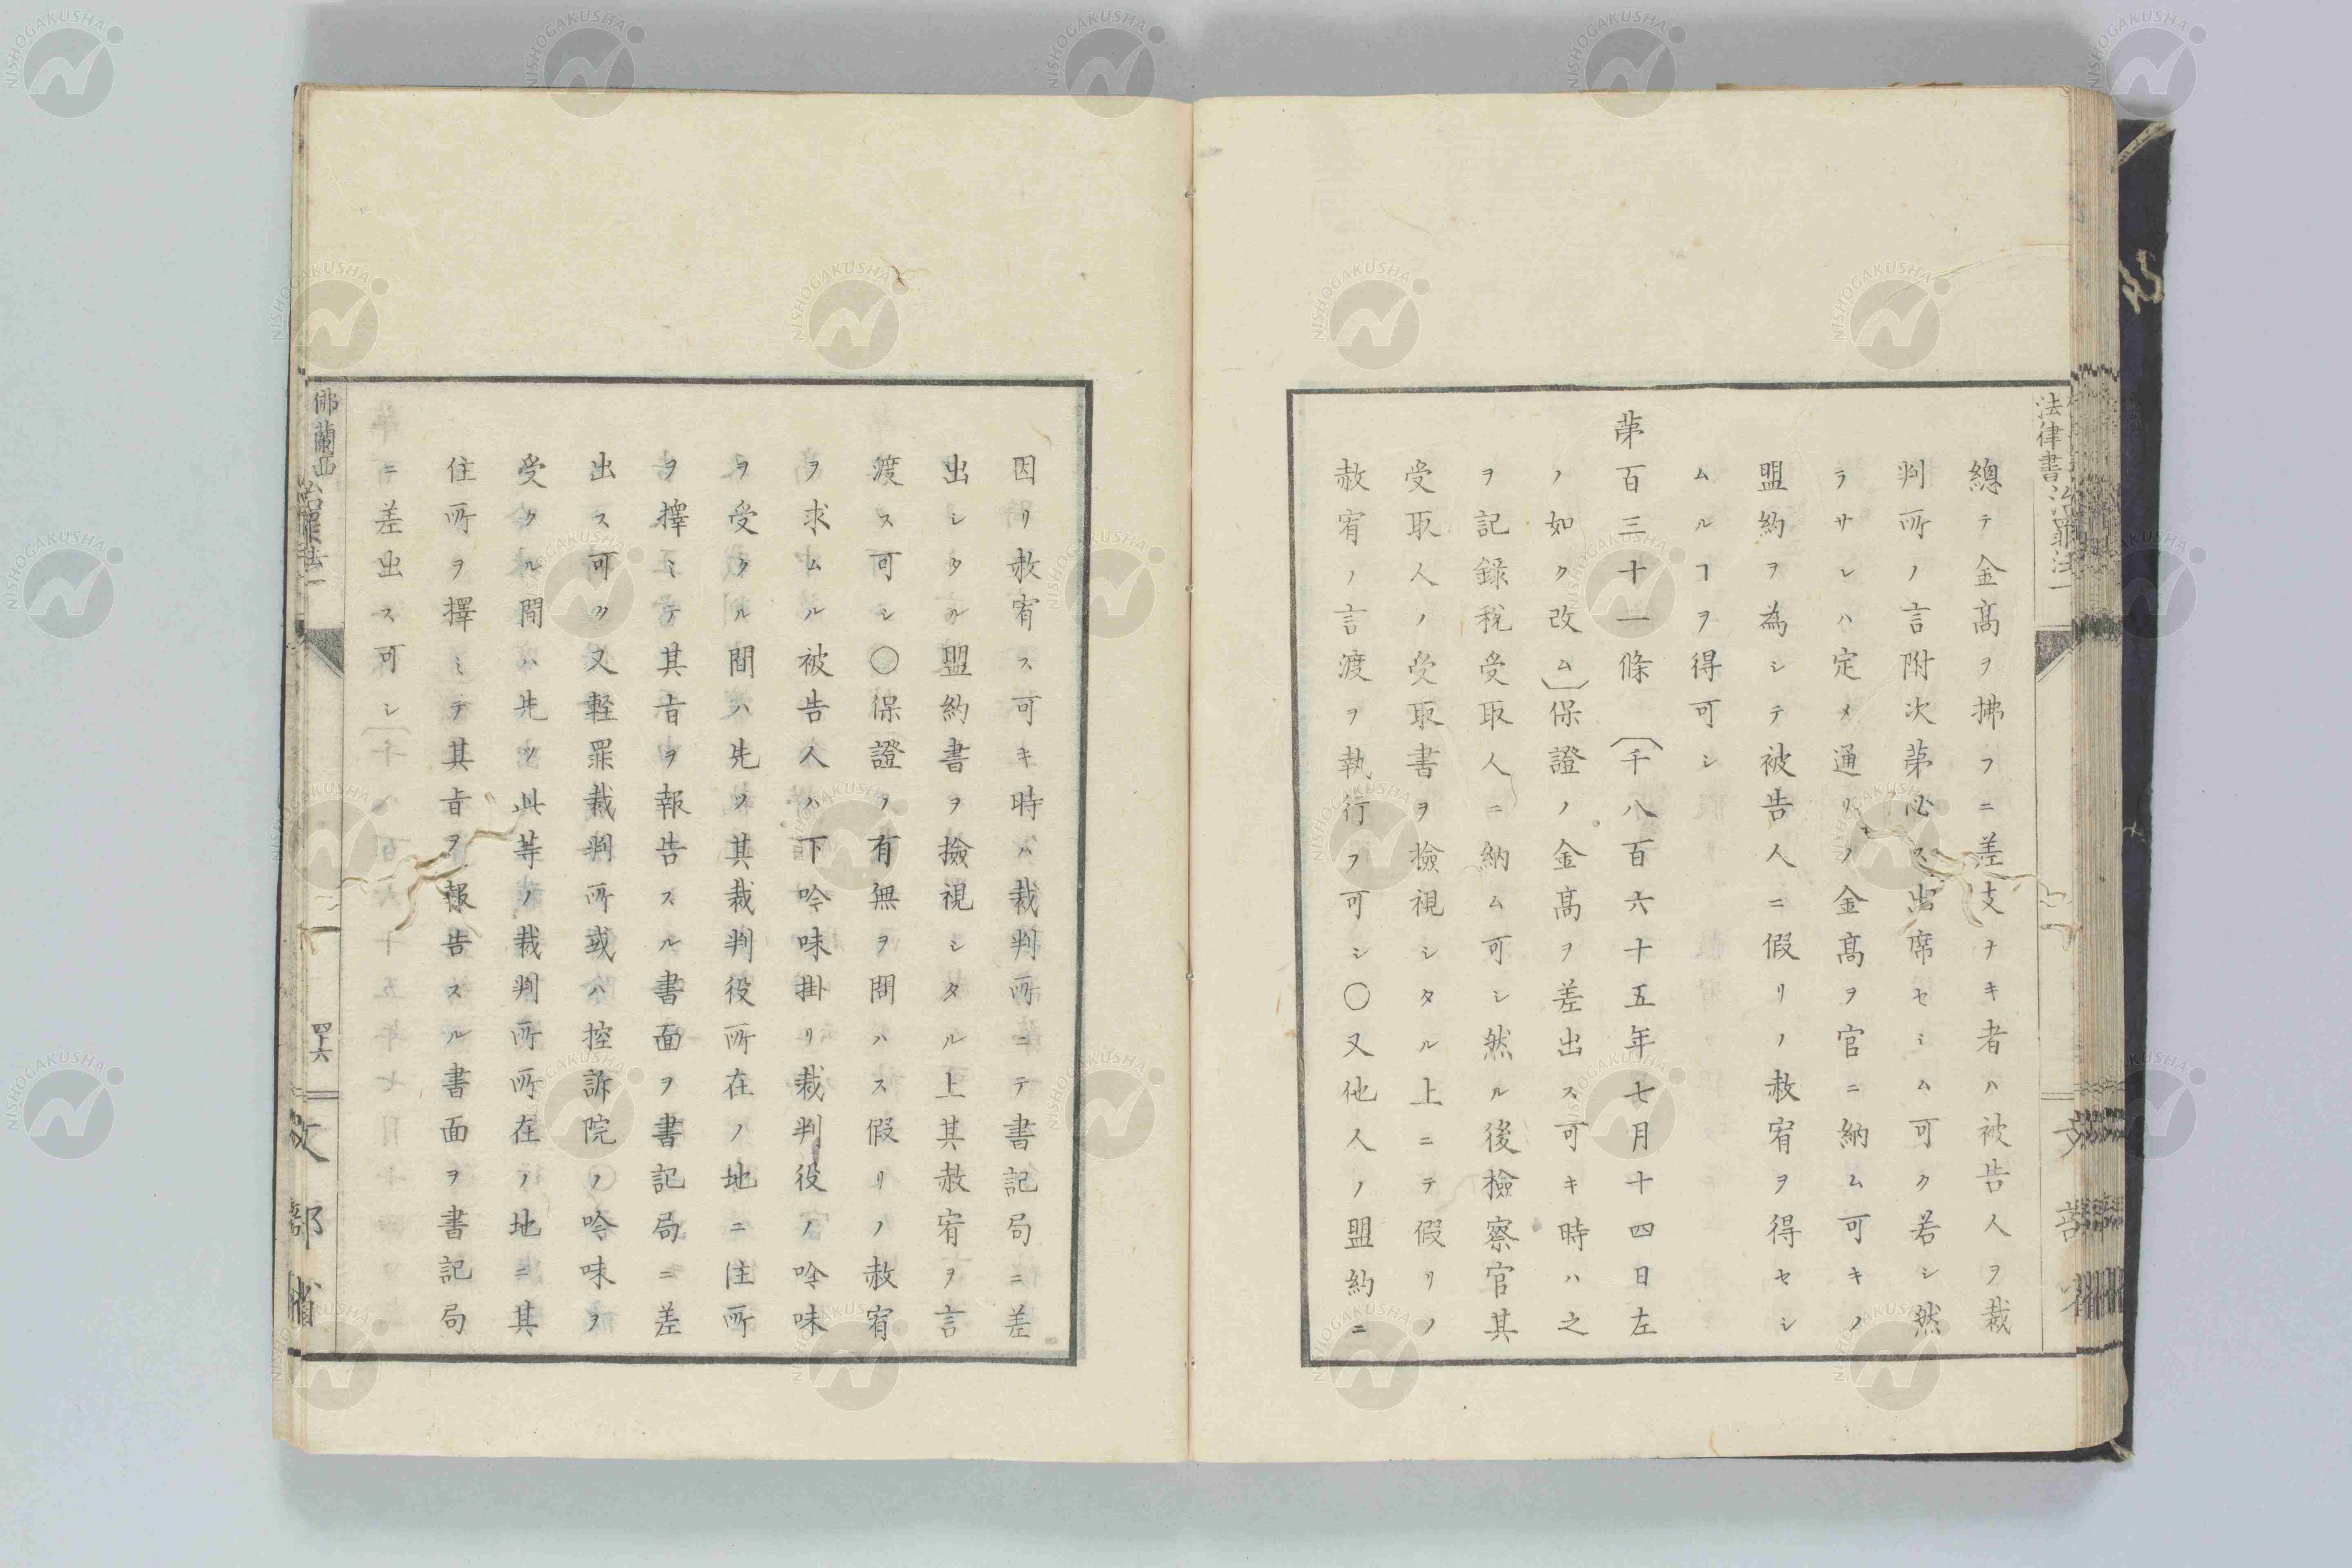 法律書治罪法一
總テ金高ヲ拂フニ差支ナキ者ハ被告人ヲ裁
判所ノ言附次第必ス出席セシム可ク若シ然
ラサレハ定メ通リノ金高ヲ官ニ納ム可キノ
盟約ヲ為シテ被告人ニ假リノ赦宥ヲ得セシ
ムルヿヲ得可シ
第百三十一條 〔千八百六十五年七月十四日左
ノ如ク改ム〕保證ノ金高ヲ差出ス可キ時ハ之
ヲ記録税受取人ニ納ム可シ然ル後檢察官其
受取人ノ受取書ヲ撿視シタル上ニテ假リノ
赦宥ノ言渡ヲ執行フ可シ〇又他人ノ盟約ニ
因リ赦宥ス可キ時ハ裁判所ニテ書記局ニ差
出シタル盟約書ヲ撿視シタル上其赦宥ヲ言
渡ス可シ〇保證ノ有無ヲ問ハス假リノ赦宥
ヲ求ムル被告人ハ下吟味掛リ裁判役ノ吟味
ヲ受クル間ハ先ツ其裁判役所在ノ地ニ住所
ヲ擇ミテ其旨ヲ報告スル書面ヲ書記局ニ差
出ス可ク又軽罪裁判所或ハ控訴院ノ吟味ヲ
受クル間ハ先ツ此等ノ裁判所所在ノ地ニ其
住所ヲ擇ミテ其旨ヲ報告スル書面ヲ書記局
ニ差出ス可シ
佛蘭西治罪法一
四十六
文部省
NISHOGAKUSHA